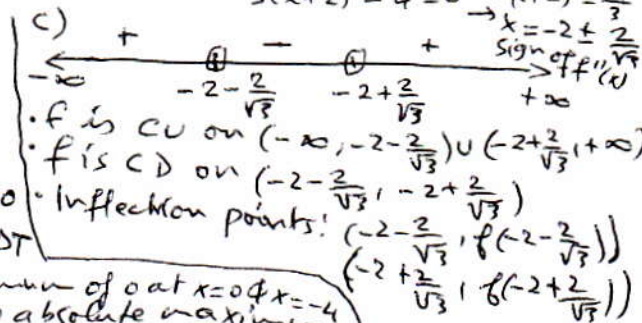 c)
→ x = -2 ± 2/√3
+ − + sign of f''(x)
-∞ -2-2/√3 -2+2/√3 +∞
· f is CU on (-∞, -2-2/√3) ∪ (-2+2/√3, +∞)
· f is CD on (-2-2/√3, -2+2/√3)
· Inflection points: (-2-2/√3, f(-2-2/√3))
(-2+2/√3, f(-2+2/√3))
of 0 at x=0 & x=-4
absolute